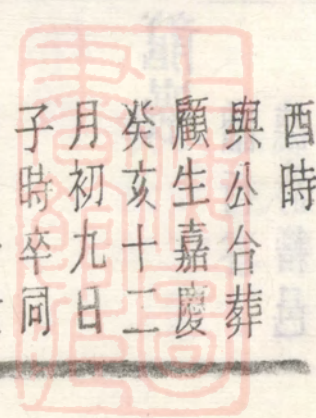 酉時
與公合葬
顧生嘉慶
癸亥十二
月初九日
子時卒同